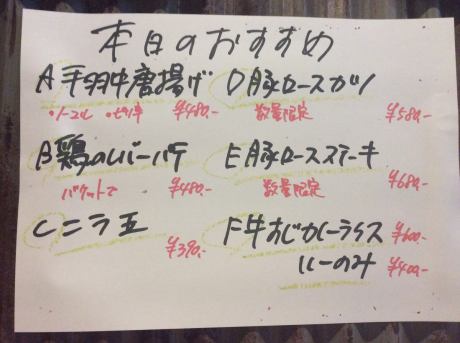 本日のおすすめ
A 手羽中唐揚げ
・ノーマル ・ピリ辛 ¥480.-
B 鶏のレバーパテ
バケットで ¥480.-
C ニラ玉
¥390.-
D 豚ロースカツ
数量限定 ¥580.-
E 豚ロースステーキ
数量限定 ¥680.-
F 牛すじカレーライス ¥600.-
ルーのみ ¥400.-